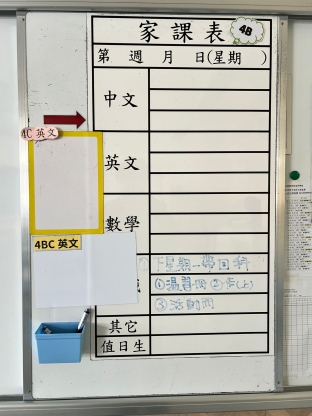 家課表 4B
第 週 月 日(星期 )
中文
4C 英文
英文
數學
4BC 英文
下星期一帶回科
① 習 ② 書(上)
③ 活動
其它
值日生